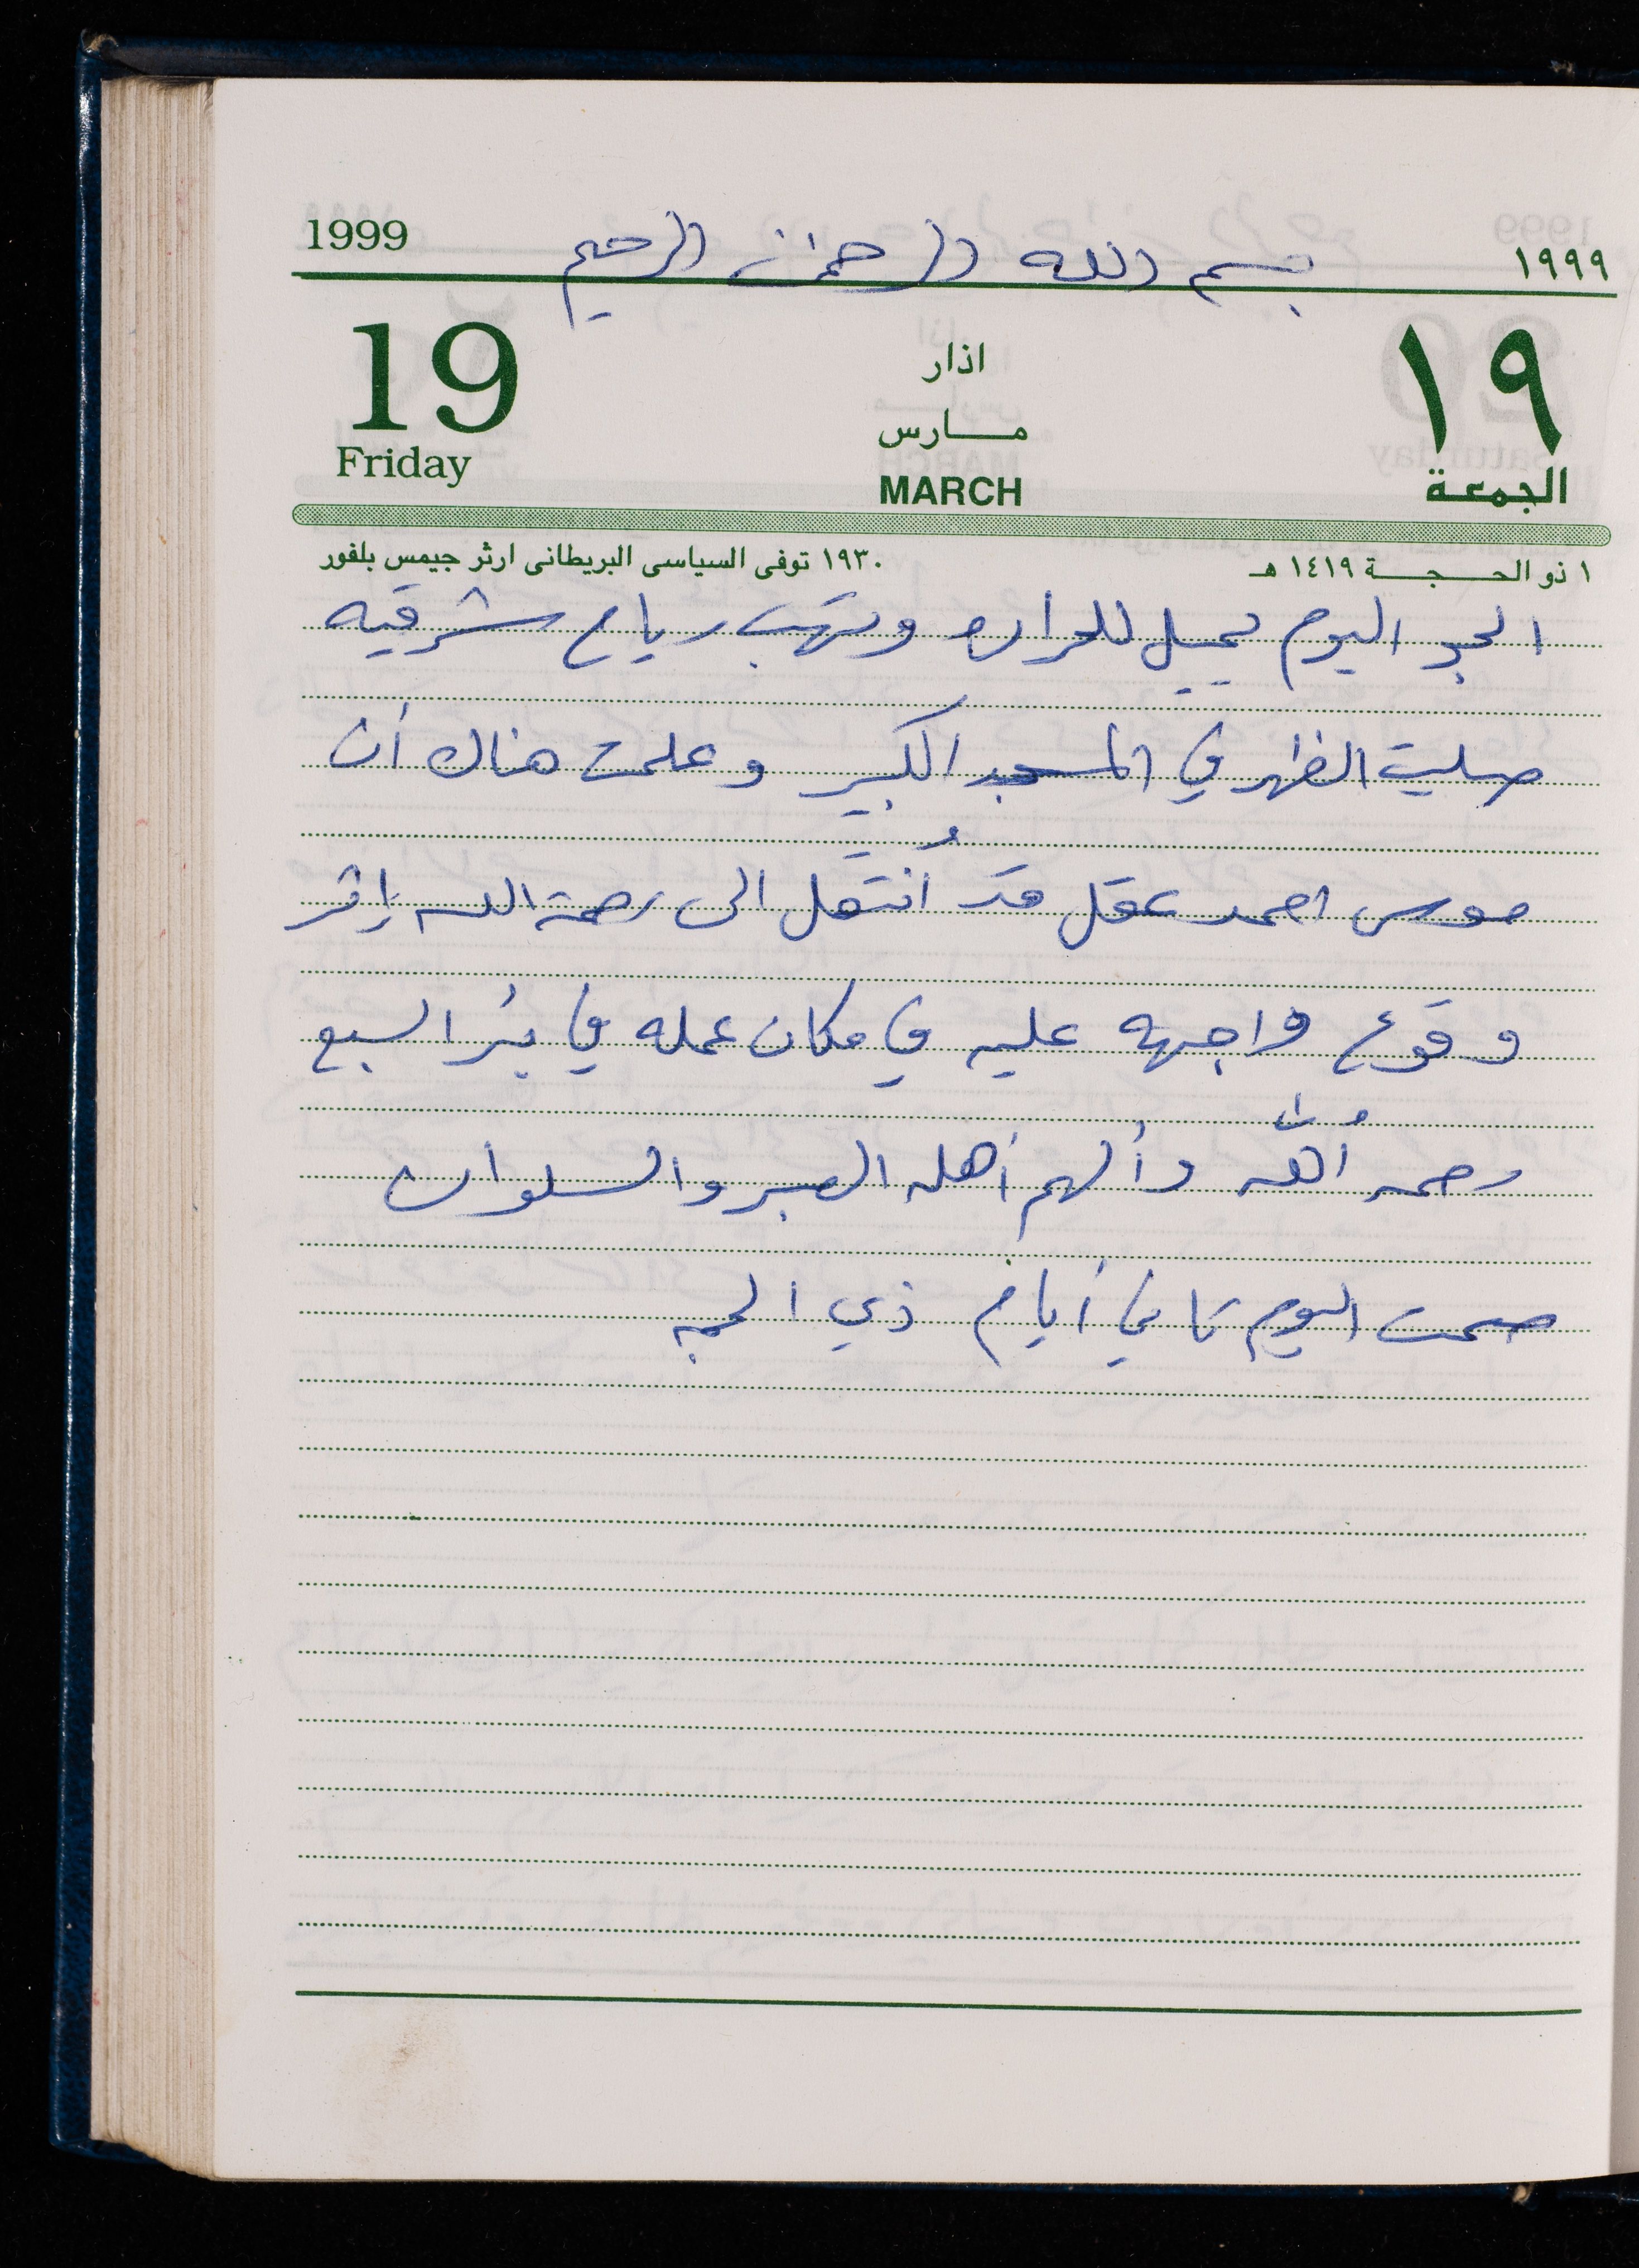 1999 بسم الله الرحمن الرحيم ١٩٩٩
19 اذار ١٩
مارس
Friday MARCH الجمعة
١ ذو الحجة ١٤١٩ هـ ١٩٣٠ توفى السياسى البريطانى ارثر جيمس بلفور
الجو اليوم يميل للحراره وتهب رياح شرقيه
صليت الظهر في المسجد الكبير وعلمت هناك أن
موسى احمد عقل قد أنتقل الى رحمة الله إثر
وقوع واجهه عليه في مكان عمله في بئر السبع
رحمه الله وألهم أهله الصبر والسلوان
صمت اليوم ثاني أيام ذي الحجه